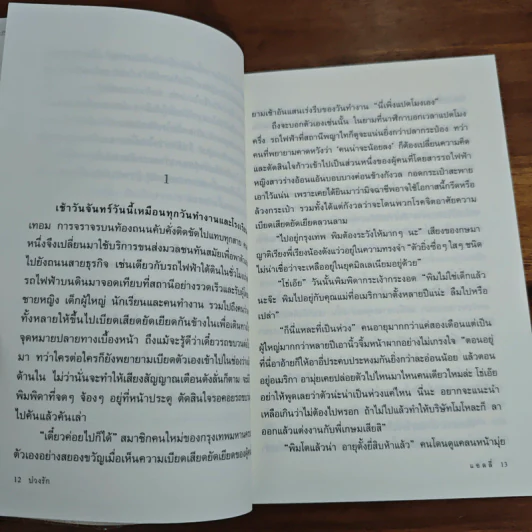 1
เช้าวันจันทร์วันนี้เหมือนทุกวันทำงานและโรงเรียน
เทอม การจราจรบนท้องถนนคับคั่งติดขัดไปแทบทุกสาย
หนึ่งจึงเปลี่ยนมาใช้บริการขนส่งมวลชนทันสมัยเพื่อพา
ไปยังถนนสายธุรกิจ เช่นเดียวกับรถไฟฟ้าใต้ดินในชั่วโมง
รถไฟฟ้าบนดินมาจอดเทียบที่สถานีอย่างรวดเร็วและ
ชายหญิง เด็กผู้ใหญ่ นักเรียนและคนทำงาน รวมไปถึง
ทั้งหลายให้ขึ้นไปเบียดเสียดยัดเยียดกันข้างในเพื่อเดินทาง
จุดหมายปลายทางเบื้องหน้า ถึงแม้จะรู้ดีว่าเดี๋ยวรถขบวน
มา ทว่าใครต่อใครก็ยังพยายามเบียดตัวเองเข้าไปในช่อง
ด้านใน ไม่ว่านั่นจะทำให้เสียงสัญญาณเตือนดังลั่นก็ตาม
พิมพิดาที่จดๆ จ้องๆ อยู่ที่หน้าประตู ตัดสินใจรอคอย
ไปคันแล้วคันเล่า
"เดี๋ยวค่อยไปก็ได้" สมาชิกคนใหม่ของกรุงเทพมหานคร
ตัวเองอย่างสยองขวัญเมื่อเห็นความเบียดเสียดยัดเยียดของ
12 บ่วงรัก
ยามเช้าอันแสนเร่งรีบของวันทำงาน "นี่เพิ่งแปดโมงเอง"
ถึงจะบอกตัวเองเช่นนั้น ในยามที่นาฬิกาบอกเวลาแปดโมง
ครึ่ง รถไฟฟ้าที่สถานีพญาไทก็ดูจะแน่นยิ่งกว่าปลากระป๋อง ทว่า
คนที่พยายามคาดหวังว่า 'คนน่าจะน้อยลง' ก็ต้องเปลี่ยนความคิด
และตัดสินใจก้าวเข้าไปเป็นส่วนหนึ่งของผู้คนที่โดยสารรถไฟฟ้า
หญิงสาวร่างอ้อนแอ้นบอบบางค่อนข้างกังวล กอดกระเป๋าสะพาย
เอาไว้แน่น เพราะเคยได้ยินมาว่ามิจฉาชีพอาจใช้โอกาสนี้กรีดหรือ
ล้วงกระเป๋า รวมทั้งได้แต่กังวลว่าจะโดนพวกโรคจิตอาศัยความ
เบียดเสียดยัดเยียดลวนลาม
"ไปอยู่กรุงเทพ พิมต้องระวังให้มากๆ นะ" เสียงของเกษมา
ญาติเรียงพี่เรียงน้องดังแว่วอยู่ในความทรงจำ "ตัวยิ่งซื่อๆ ใสๆ ชนิด
ไม่น่าเชื่อว่าจะเหลืออยู่ในยุคมิลเลเนียมอยู่ด้วย"
"โซ่เอ๊ย" วันนั้นพิมพิดากระเง้ากระงอด "พิมไม่ใช่เด็กแล้ว
นะจ๊ะ พิมไปอยู่กับคุณแม่ที่อเมริกามาตั้งหลายปีแน่ะ ลืมไปหรือ
เปล่า"
"ก็นี่แหละที่เป็นห่วง" คนอายุมากกว่าแค่สองเดือนแต่เป็น
ผู้ใหญ่มากกว่าหลายปีเอานิ้วจิ้มหน้าผากอย่างไม่เกรงใจ "ตอนอยู่
ที่นี่อาอ้ายก็ให้อาอี๋ประคบประหงมกันยิ่งกว่าละอ่อนน้อย แล้วตอน
อยู่อเมริกา อามุ่ยเคยปล่อยตัวไปไหนมาไหนคนเดียวไหมล่ะ โซ่เอ๊ย
อย่าให้พูดเลยว่าตัวน่ะน่าเป็นห่วงแค่ไหน นี่นะ อยากจะแนะนำ
เหลือเกินว่าไม่ต้องไปหรอก ถ้าไม่ไปแล้วทำให้บริษัทโมโหละก็ ลา
ออกแล้วแต่งงานกับพี่เกษมเสียสิ"
"พิมโตแล้วน่า อายุตั้งยี่สิบห้าแล้ว" คนโดนดูแคลนหน้ามุ่ย
แชลลี่ 13